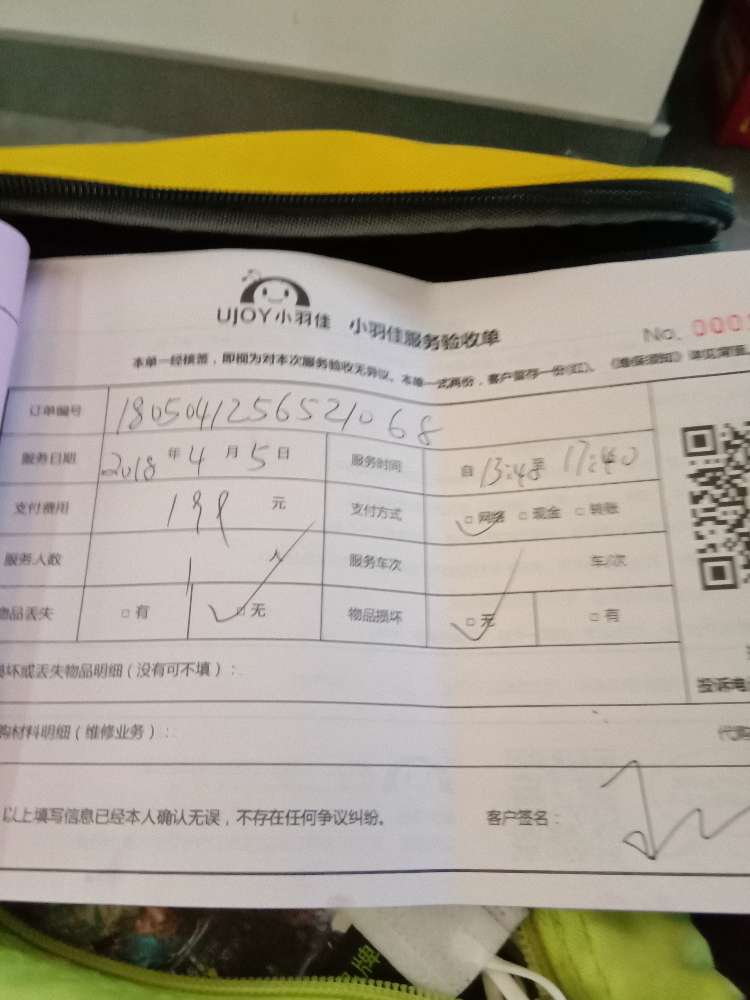 UJOY小羽佳 小羽佳服务验收单
No. 000
本单一经核票，即视为对本次服务验收无异议。本单一式两份，客户留存一份(红)。
订单编号 1805041256521068
服务日期 2018年4月5日 服务时间 自13:48至17:40
支付费用 199元 支付方式 □网络 □现金 □转账
服务人数 1人 服务车次 车/次
物品丢失 □有 □无 物品损坏 □无 □有
损坏或丢失物品明细（没有可不填）：
购材料明细（维修业务）： 代购
投诉电
以上填写信息已经本人确认无误，不存在任何争议纠纷。 客户签名：
牌